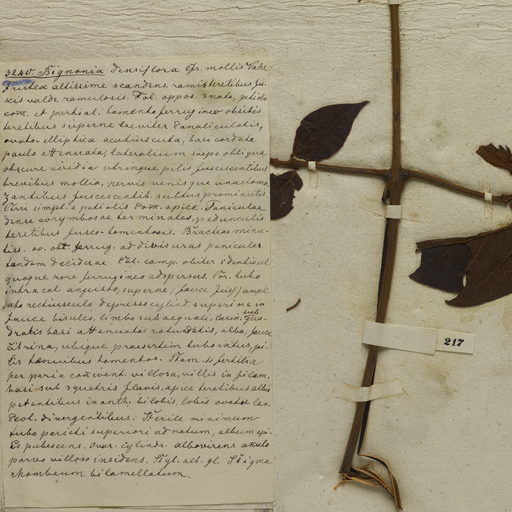 3240. Bignonia densiflora Gr. mollis Vahl
Frutex altissime scandens, ramis teretibus fus
cis valde ramulosis. Fol. oppos. 3nata, petiolo
com. et partial. tomento ferrugineo obsitis
teretibus superne leviter canaliculatis,
ovato-elliptica acutiuscula, basi cordata
paulo attenuata, lateralium saepe obliqua
obscure viridia utrinque pilis fuscescentibus
brevibus mollia, nervis venisque anastomo
zantibus fuscescentib. subtus prominentib
Cirri simpl. e petiolis com. apice. Paniculae
dense corymbosae terminales, pedunculis
teretibus fusco-tomentosis. Bracteae minu-
tiss. ov. obt ferrug. ad divisuras paniculae
tandem deciduae. Cal. camp. obiter 5 denticul.
quoque rore ferrugineo adspersus. Cor. tubo
intra cal. angusto, superne
apo rectiusculo depresso cylind. superiore in
fauce bisulco, limbo subaequali, lacin. sub
dratis basi attenuatis rotundatis, alba, fauce
citrina, ubique praesertim tubo intus, pi-
lis tenuibus tomentos. Stam. 4 fertilia
per paria connivent. villosa, villis in filam.
basi sub squetris flavis, apice teretibus albis
petentibus in anth. bilobis, lobis ovatis lan
ceol. divergentibus. Sterile minimum
tubo parieti superiori adnatum, album api
ce pubescens. Ovar. cylindr. albovirens anulo
parvo villoso insidens. Styl. alb. gl. Stigma
rhombeum bilamellatum.
217